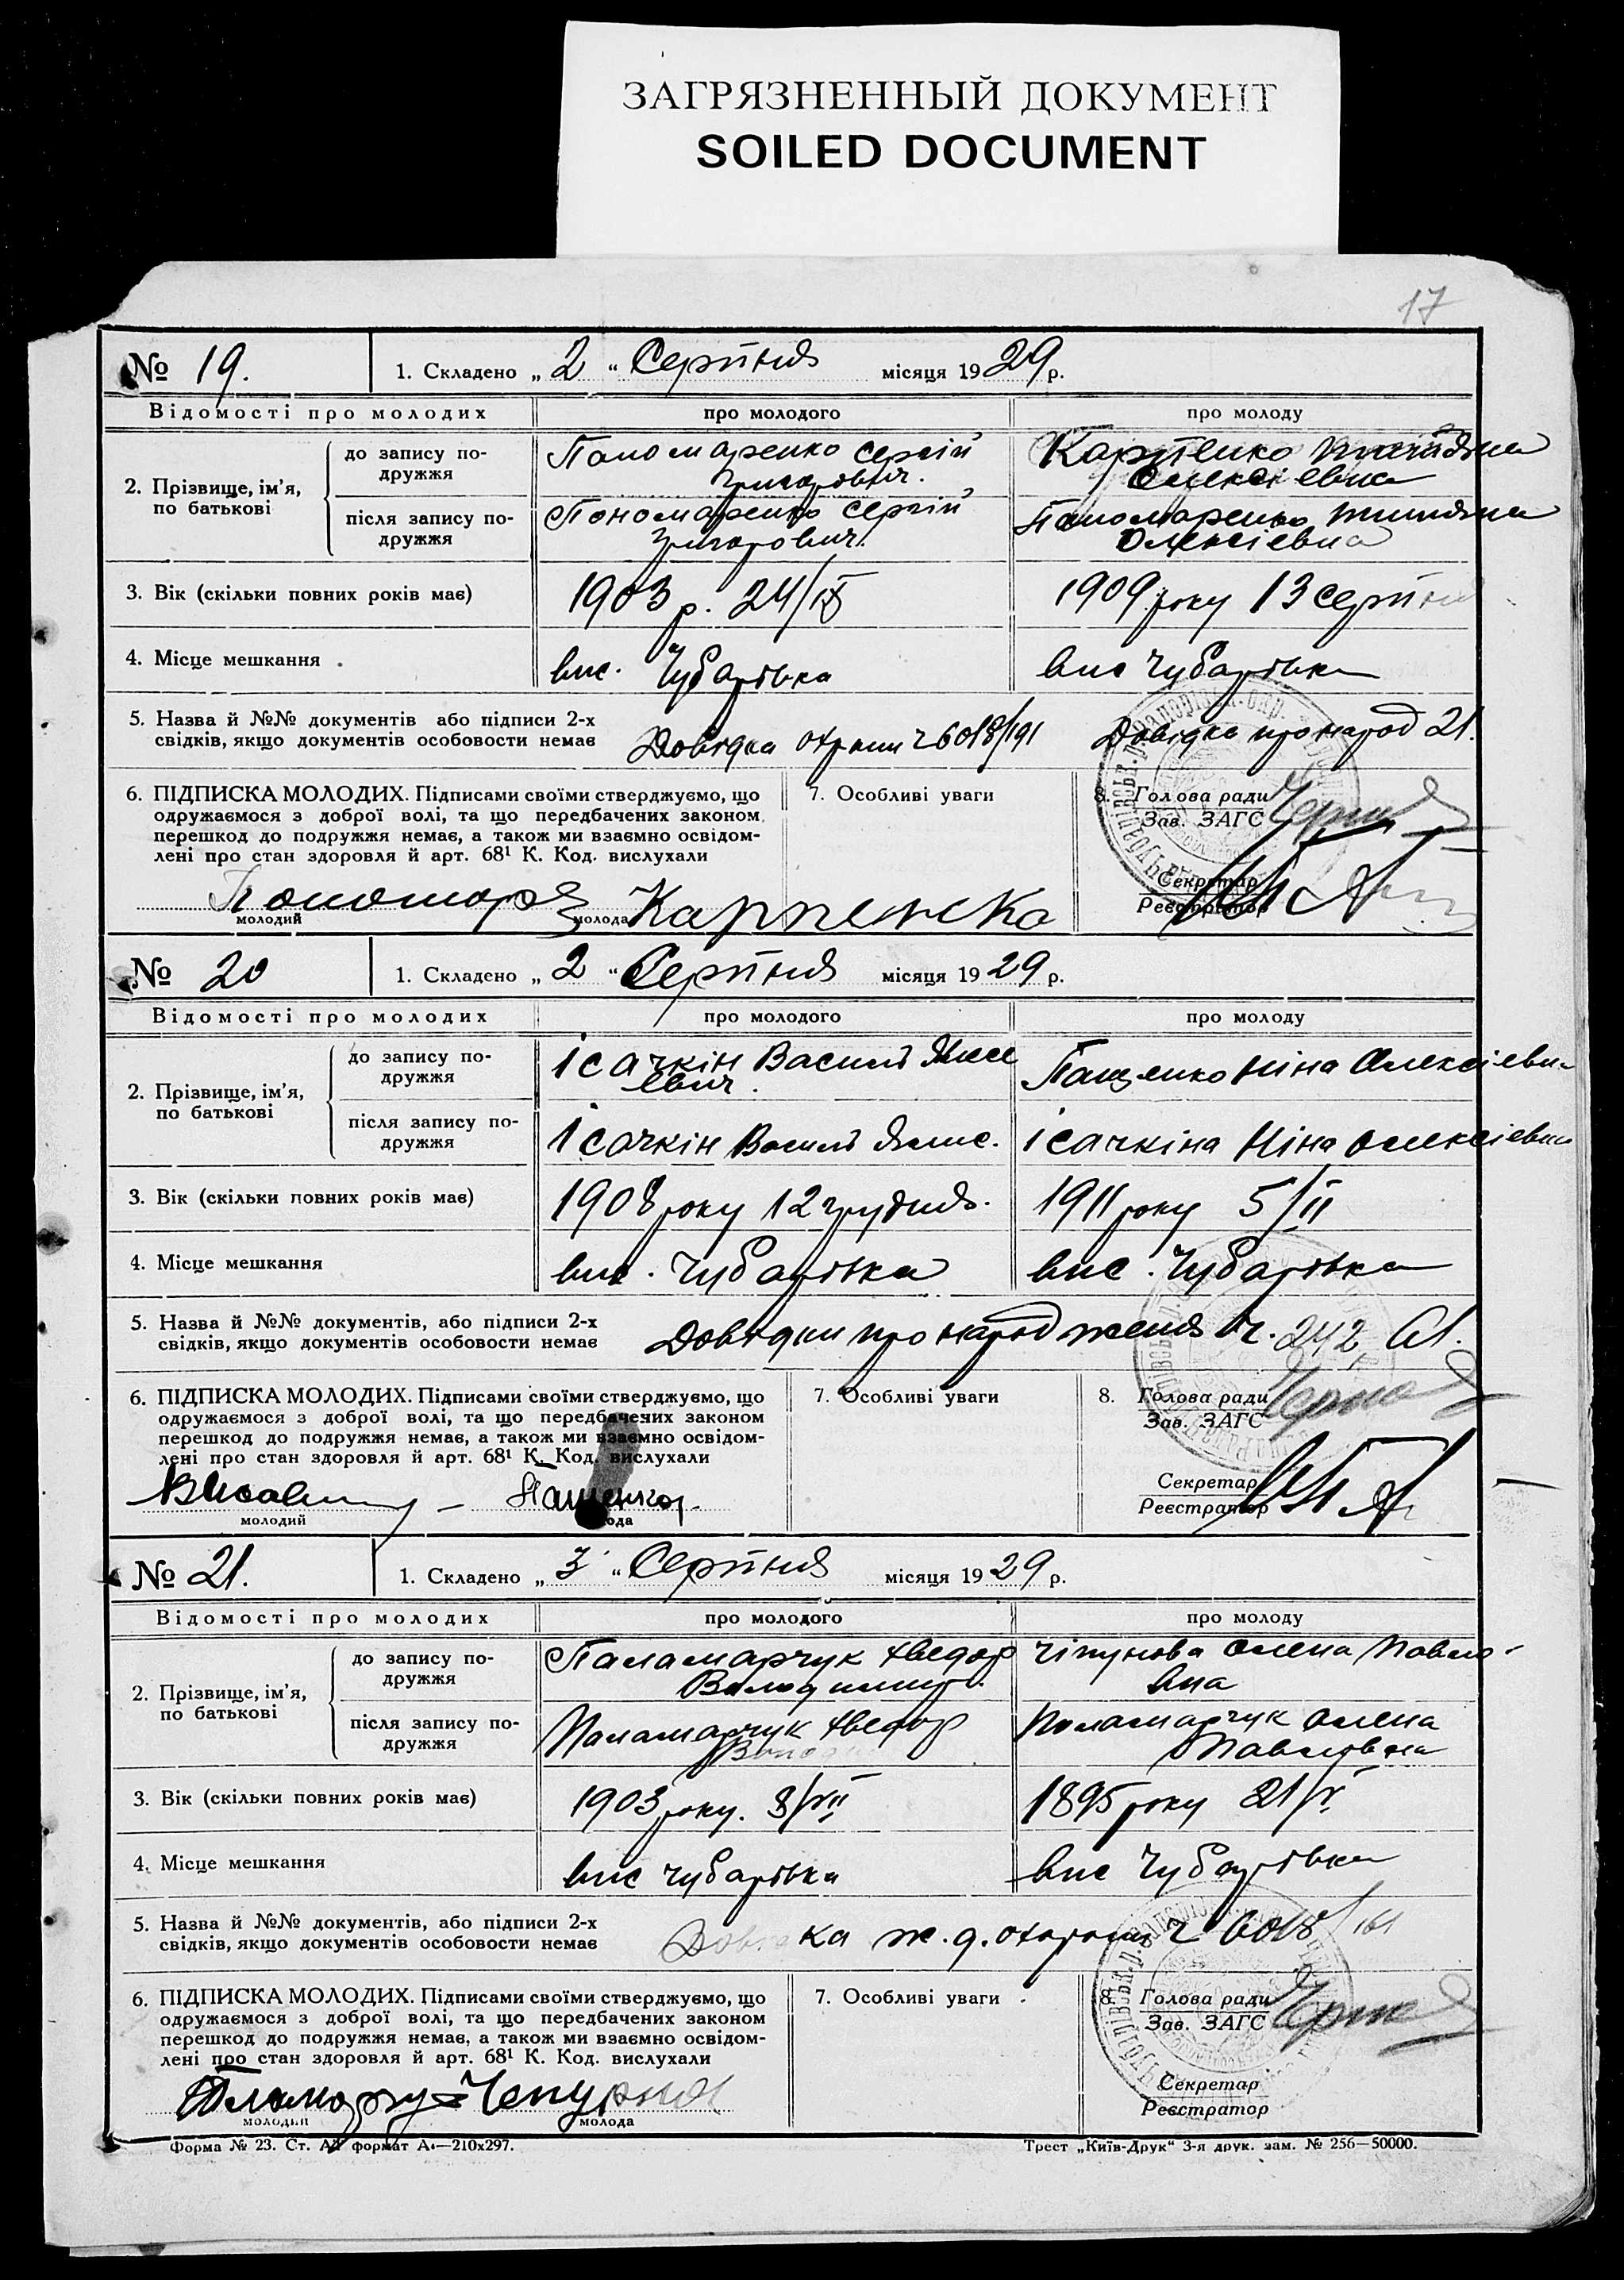 ЗАГРЯЗНЕННЫЙ ДОКУМЕНТ
SOILED DOCUMENT
17
№ 19. 1. Складено „ 2 “ Серпня місяця 1929 р.
Відомості про молодих про молодого про молоду
2. Прізвище, ім’я, по батькові
до запису подружжя
Пономаренко Сергій
Григорович.
Карпенко
Олексієвна
після запису подружжя
Пономаренко Сергій
Григорович.
Пономаренко
Олексієвна
3. Вік (скільки повних років має) 1903 р. 24/IX 1909 року 13 серпня
4. Місце мешкання вис. Чубарівка вис Чубарівка
5. Назва й №№ документів або підписи 2-х
свідків, якщо документів особовости немає Довідка 6018/191 Довідка про народ 21.
6. ПІДПИСКА МОЛОДИХ. Підписами своїми стверджуємо, що
одружаємося з доброї волі, та що передбачених законом
перешкод до подружжя немає, а також ми взаємно освідом-
лені про стан здоровля й арт. 68¹ К. Код. вислухали
7. Особливі уваги
8. Голова ради
Зав. ЗАГС
Секретар
Реєстратор
Карпенска
молодий молода
№ 20 1. Складено „ 2 “ Серпня місяця 1929 р.
Відомості про молодих про молодого про молоду
2. Прізвище, ім’я,
по батькові
до запису по-
дружжя
Ісачкін Василь
евич.
Пащенко Ніна Олексієвн
після запису по-
дружжя
Ісачкін Василь
Ісачкіна Ніна Олексієвн
3. Вік (скільки повних років має) 1908 року 12 грудня. 1911 року 5/II
4. Місце мешкання вис. Чубарівка вис. Чубарівка
5. Назва й №№ документів, або підписи 2-х
свідків, якщо документів особовости немає Довідки про народження ч. 242,
6. ПІДПИСКА МОЛОДИХ. Підписами своїми стверджуємо, що
одружаємося з доброї волі, та що передбачених законом
перешкод до подружжя немає, а також ми взаємно освідом-
лені про стан здоровля й арт. 68¹ К. Код. вислухали
7. Особливі уваги
8. Голова ради
Зав. ЗАГС
Секретар
Реєстратор
Пащенко
молодий
№ 21. 1. Складено „ 3 “ Серпня місяця 1929 р.
Відомості про молодих про молодого про молоду
2. Прізвище, ім’я,
по батькові
до запису по-
дружжя
Паламарчук Хведор
Володимир.
Олена Павло-
вна
після запису по-
дружжя
Паламарчук Хведор
Паламарчук Олена
Павловна
3. Вік (скільки повних років має) 1903 року. 8/VII 1895 року 21/V
4. Місце мешкання вис Чубарівка вис Чубарівка
5. Назва й №№ документів, або підписи 2-х
свідків, якщо документів особовости немає Довідка ж.д. охорони ч 6018/161
6. ПІДПИСКА МОЛОДИХ. Підписами своїми стверджуємо, що
одружаємося з доброї волі, та що передбачених законом
перешкод до подружжя немає, а також ми взаємно освідом-
лені про стан здоровля й арт. 68¹ К. Код. вислухали
7. Особливі уваги
8. Голова ради
Зав. ЗАГС
Секретар
Реєстратор
молодий молода
Форма № 23. Ст. А₄ формат А₄—210х297. Трест „Київ-Друк“ 3-я друк. зам. № 256—50000.